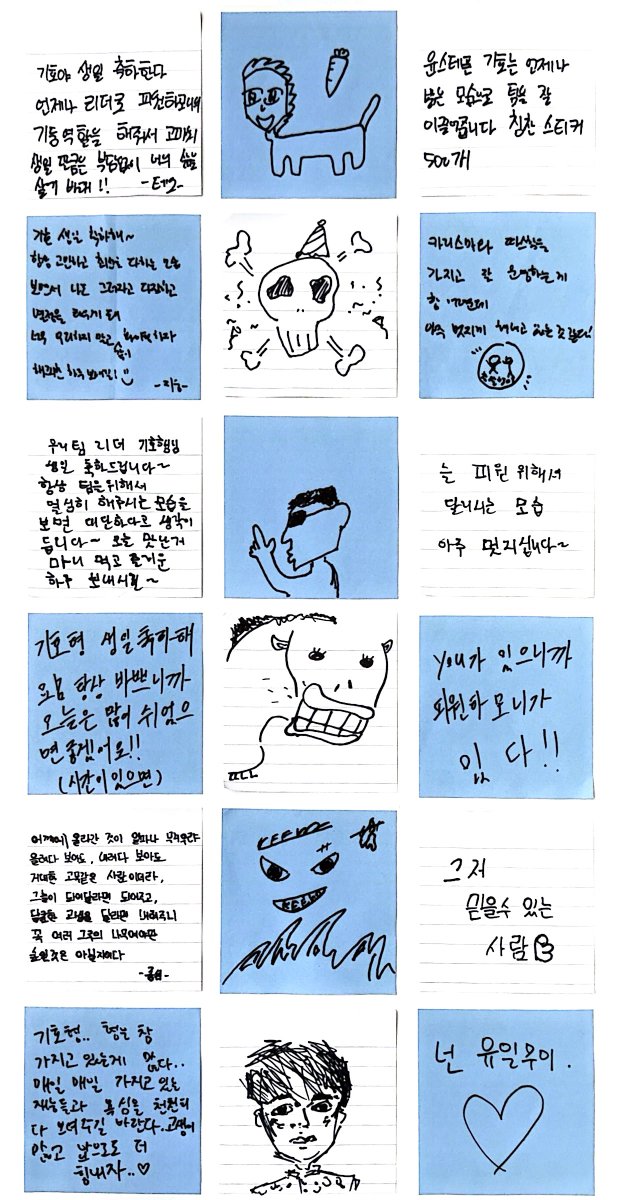 기호야 생일 축하한다
언제나 리더로
기둥역할을 해줘서 고마워
생일 만큼은 부담없이 너의 삶을
살기 바래!!
윤스테폰 기호는 언제나
밝은 모습으로 팀을 잘
이끌어줍니다 칭찬 스티커
500개
기호 생일 축하해~
항상 고민하고 최선을 다하는 모습
보면서 나도 그래야지 다짐하고
너무 무리하지 말고 화이팅하자
행복한 하루 보내길!
-지웅-
카리스마와 따뜻함을
가지고 잘 운영하는게
힘든건데
아주 멋지게 해내고 있는 것 같다!
우리팀 리더 기호형님
생일 축하드립니다~
항상 팀을위해서
열심히 해주시는 모습을
보면 대단하다고 생각이
듭니다~ 오늘 맛난거
마니 먹고 즐거운
하루 보내시길~
늘 피원위해서
달리시는 모습
아주 멋지십니다~
기호형 생일축하해
요즘 항상 바쁘니까
오늘은 많이 쉬었으
면 좋겠어요!!
(시간이있으면)
you가 있으니까
피원하모니가
있다!!
어깨에 올라간 것이 얼마나 무거우랴
올려다 보아도, 내려다 보아도
거대한 고목같은 사람이더라,
그늘이 되어달라면 되어주고,
달콤한 과실을 달라면 내어주니
꼭 여러 그루의 나무여야만
숲인것은 아닐지어다
-종섭-
그저
믿을수 있는
사람
기호형.. 형은 참
가지고 있는게 많다..
매일 매일 가지고 있는
재능들과 욕심을 천천히
다 보여주길 바란다..고생이
많고 앞으로도 더
힘내자..♡
넌 유일무이.